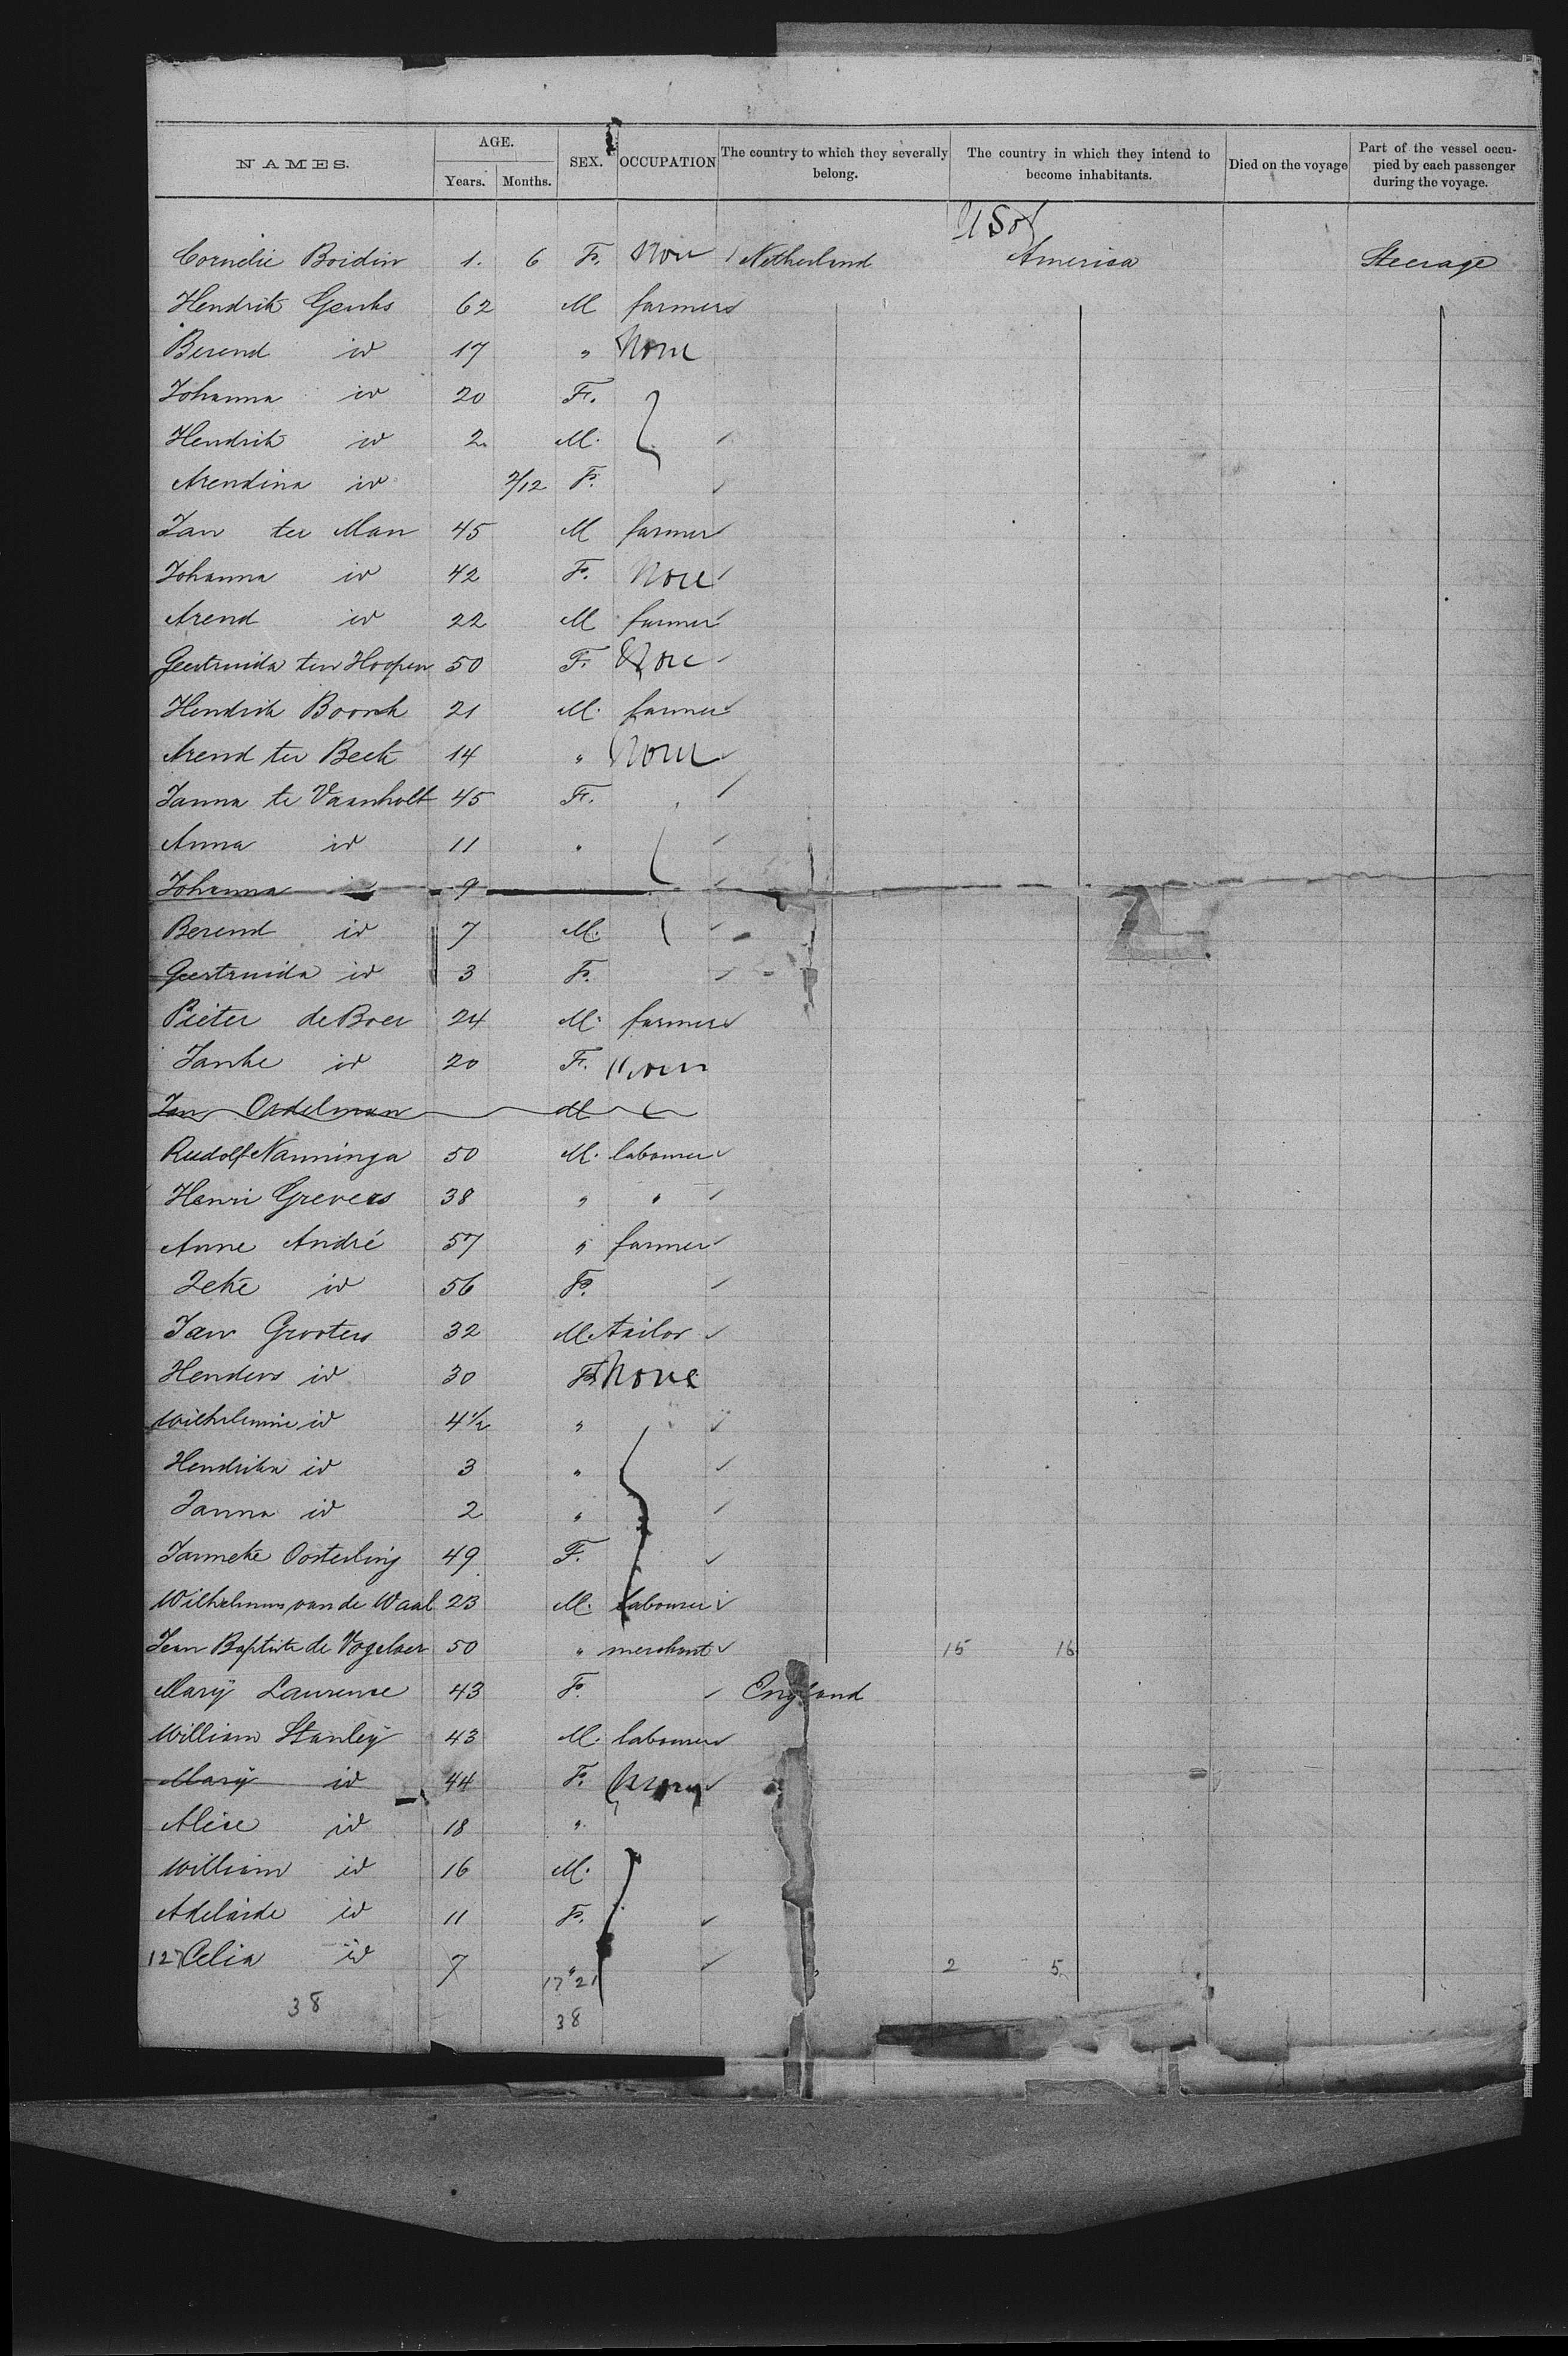 NAMES. AGE. SEX. OCCUPATION The country to which they severally belong. The country in which they intend to become inhabitants. Died on the voyage Part of the vessel occupied by each passenger during the voyage.
Years. Months.
US of
Cornelie Boidin 1. 6 F. Non Netherland America Steerage
Hendrik 62 M farmer
Berend id 17 " None
Johanna id 20 F.
Hendrik id 2 M.
Arendina id 7/12 F.
Jan ter Man 45 M farmer
Johanna id 42 F. None
Arend id 22 M farmer
Geertruida ten Hoopen 50 F. None
Hendrik Boonk 21 M. farmer
Arend ter Beek 14 " None
Janna te Vaanholt 45 F.
Anna id 11 "
Johanna id 9
Berend id 7 M.
Geertruida id 3 F.
Pieter de Boer 24 M. farmer
Janke id 20 F. None
Jan M
Rudolf Nanninga 50 M. labourer
Henri Grevers 38 " "
Anne André 57 " farmer
Zeke id 56 F.
Jan Grooters 32 M. tailor
Henders id 30 F. None
Wilhelmine id 4½ "
Hendrika id 3 "
Janna id 2 "
Janneke Oosterling 49 F.
Wilhelmus van de Waal 23 M. labourer
Jean Baptiste de Vogelaer 50 " merchant 15 16
Mary Laurence 43 F. England
William Stanley 43 M. labourer
Mary id 44 F.
Alice id 18 "
William id 16 M.
Adelaide id 11 F.
127 Celia id 7 " 2 5
17 21
38 38